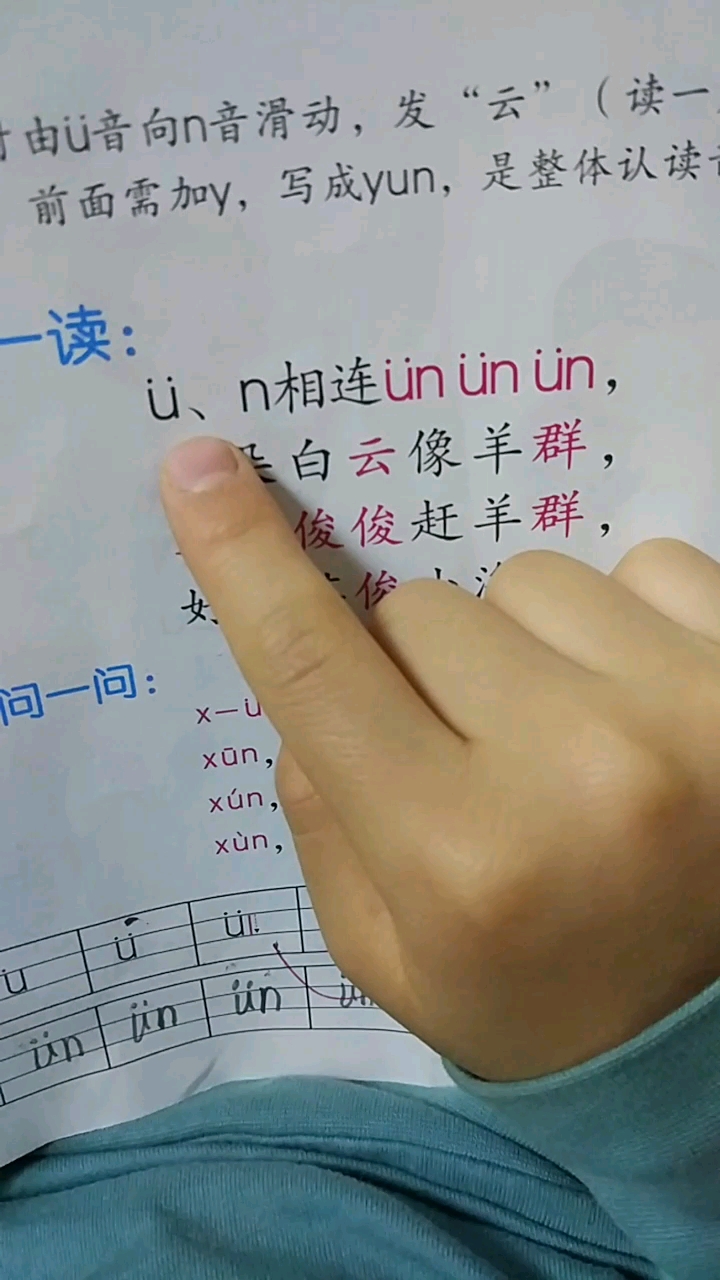 由ü音向n音滑动，发“云”（读一
前面需加y，写成yun，是整体认读
一读：
ü、n相连ün ün ün，
朵白云像羊群，
俊俊赶羊群，
俊
问一问：
x－ü
xūn，
xún，
xùn，
ü ü ü
ün ün ün ün